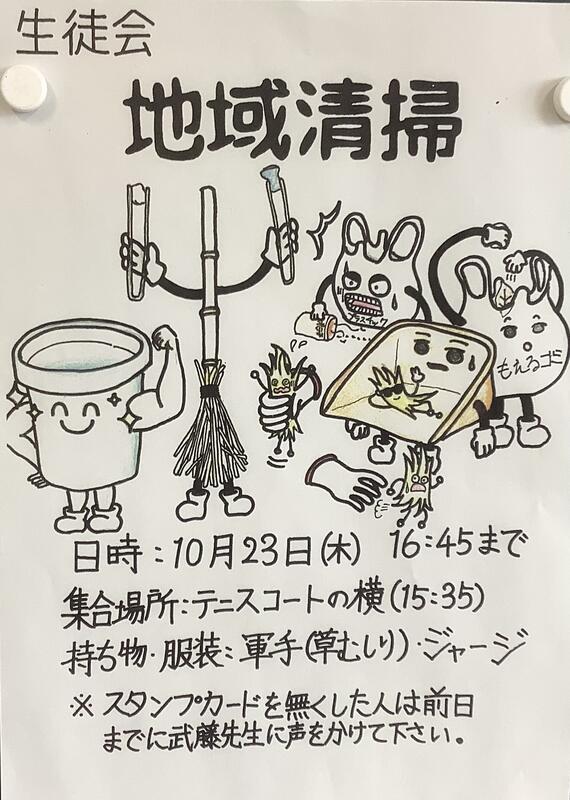 生徒会
地域清掃
プラスチック
もえるゴミ
日時：10月23日(木) 16:45まで
集合場所：テニスコートの横(15:35)
持ち物・服装：軍手(草むしり)・ジャージ
※ スタンプカードを無くした人は前日
までに武藤先生に声をかけて下さい。